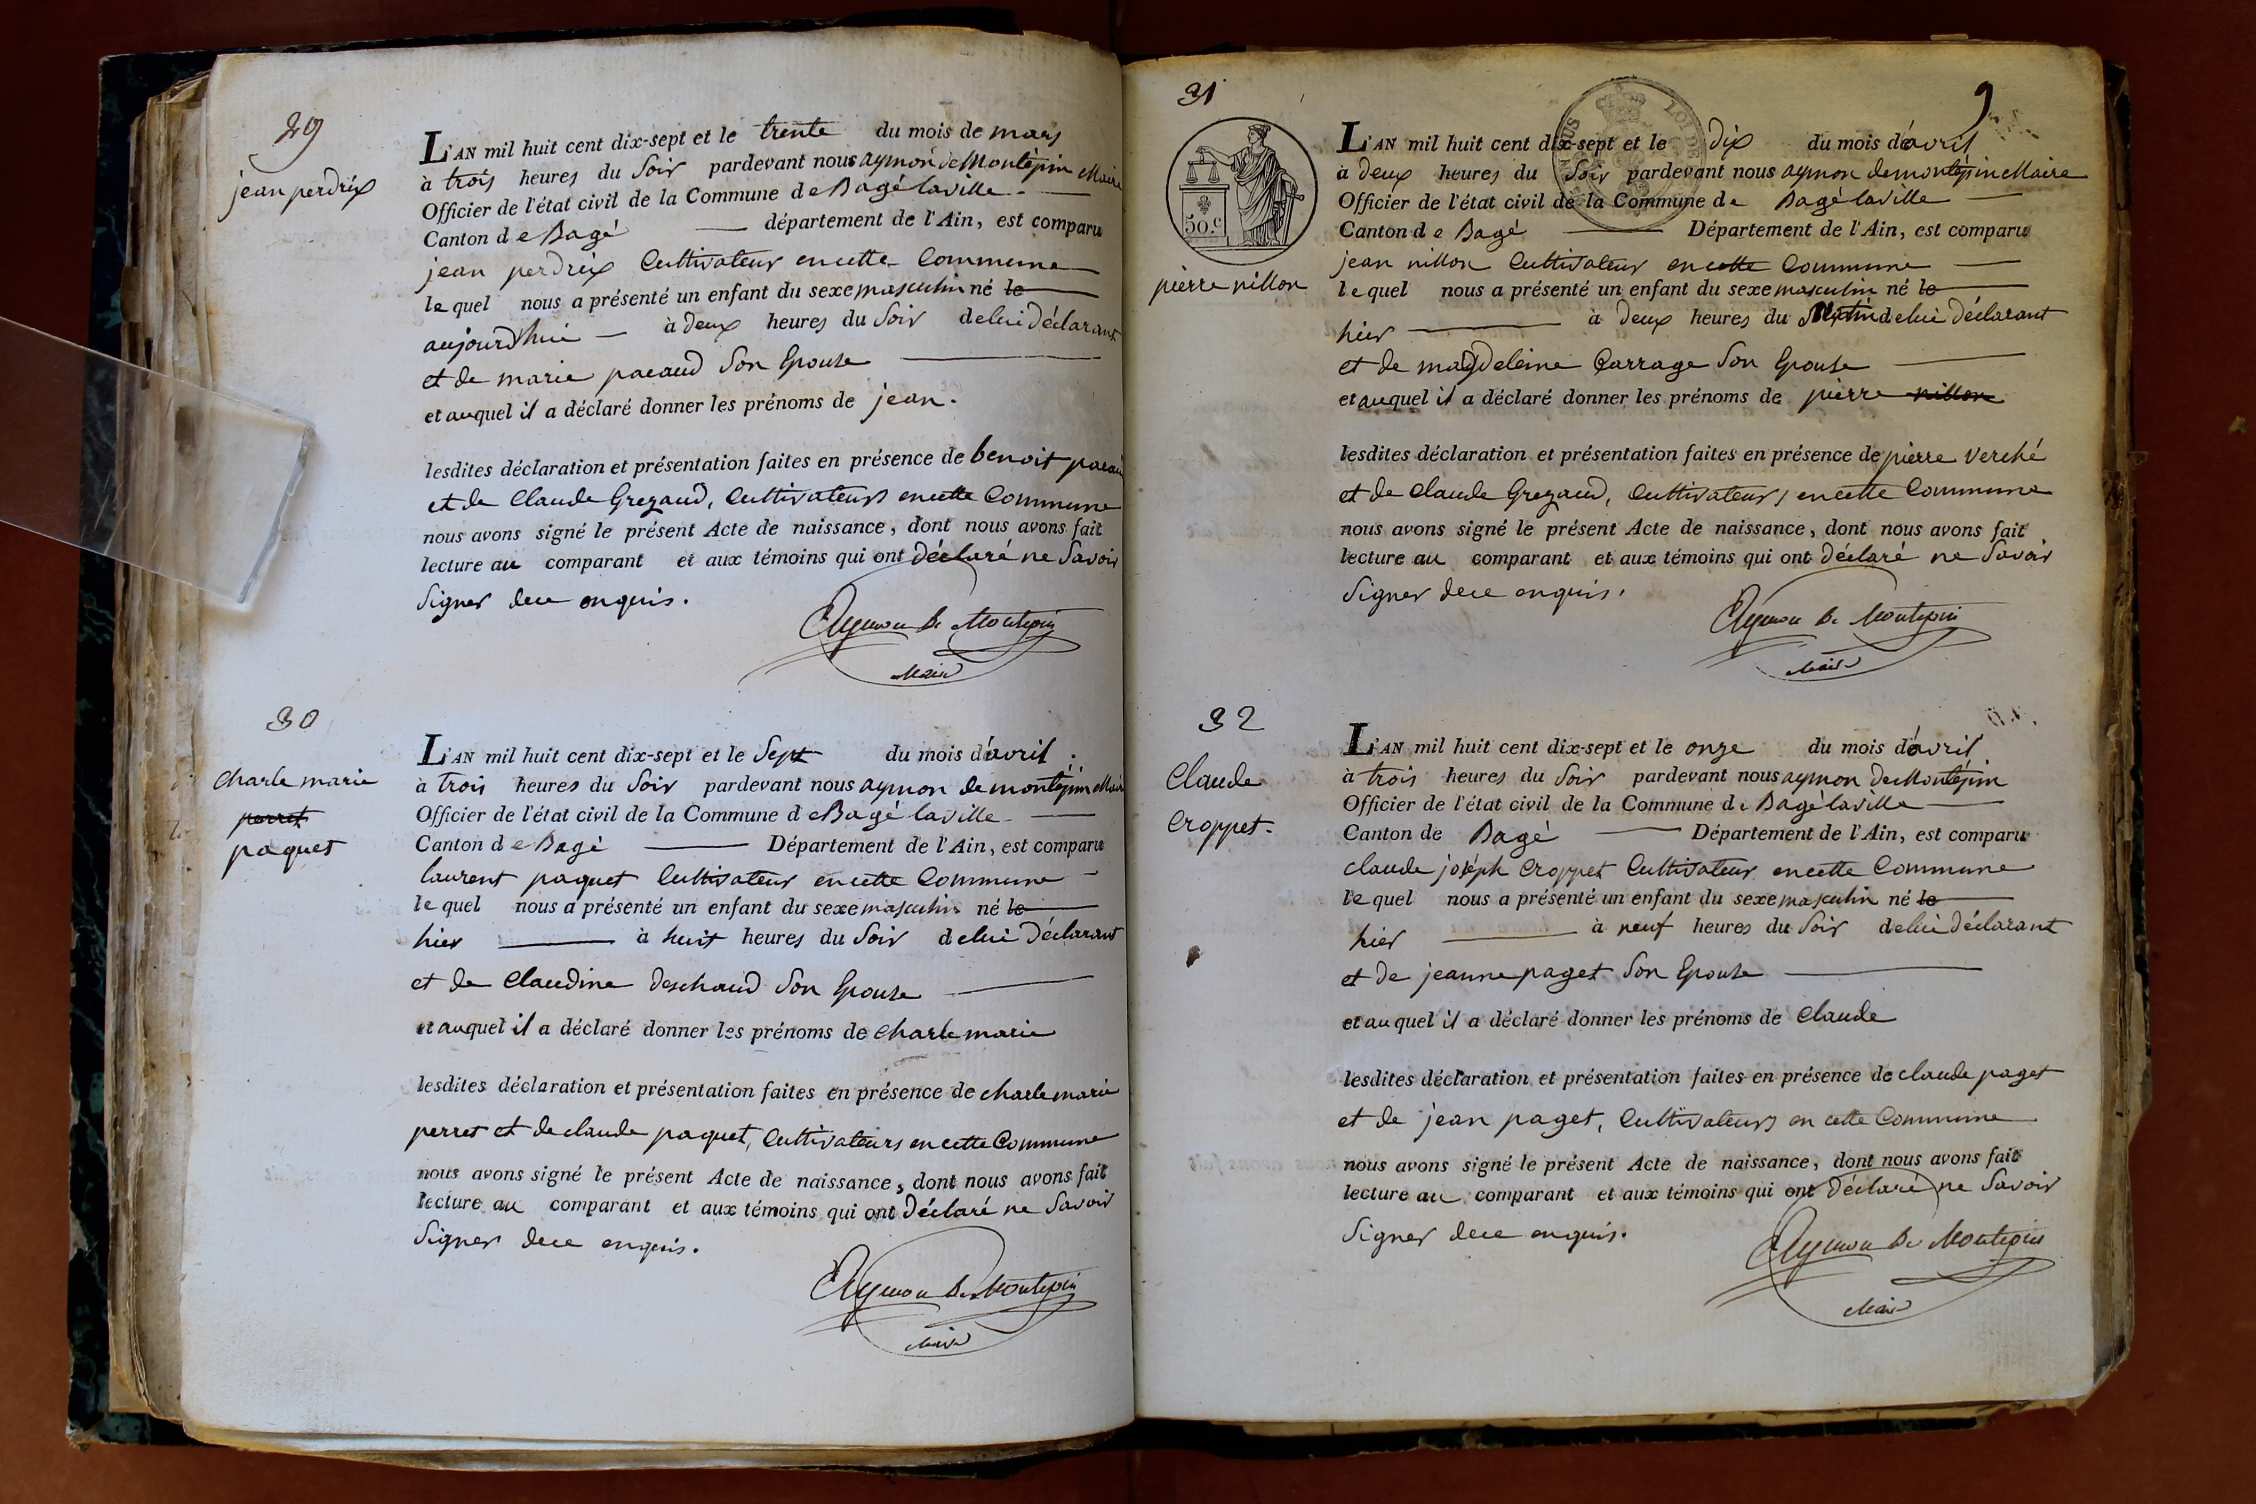 29
jean perdrix
L'AN mil huit cent dix-sept et le trente du mois de mars
à trois heures du Soir pardevant nous aymon de Montépin Maire
Officier de l'état civil de la Commune de Bagé laville
Canton de Bagé département de l'Ain, est comparu
jean perdrix Cultivateur en cette Commune
lequel nous a présenté un enfant du sexe masculin né le
aujourd'hui à deux heures du Soir de lui Déclarant
et de marie pacaud Son Epouse
et auquel il a déclaré donner les prénoms de jean.
lesdites déclaration et présentation faites en présence de benoit pacaud
et de Claude Grezaud, Cultivateurs en cette Commune
nous avons signé le présent Acte de naissance, dont nous avons fait
lecture au comparant et aux témoins qui ont Déclaré ne Savoir
Signer de ce enquis.
Aymon De Montepin
Maire
30
charle marie
perret
paquet
L'AN mil huit cent dix-sept et le Sept du mois d'avril
à trois heures du Soir pardevant nous aymon de montépin Maire
Officier de l'état civil de la Commune de Bagé laville
Canton de Bagé Département de l'Ain, est comparu
laurent paquet Cultivateur en cette Commune
lequel nous a présenté un enfant du sexe masculin né le
hier à huit heures du Soir de lui Déclarant
et de Claudine Deschaud Son Epouse
et auquel il a déclaré donner les prénoms de charle marie
lesdites déclaration et présentation faites en présence de charle marie
perret et de claude paquet, Cultivateurs en cette Commune
nous avons signé le présent Acte de naissance, dont nous avons fait
lecture au comparant et aux témoins qui ont Déclaré ne Savoir
Signer de ce enquis.
Aymon De Montepin
Maire
31
9
50.c
pierre nillon
L'AN mil huit cent dix-sept et le dix du mois d'avril
à deux heures du Soir pardevant nous aymon de montépin Maire
Officier de l'état civil de la Commune de Bagé laville
Canton de Bagé Département de l'Ain, est comparu
jean nillon Cultivateur en cette Commune
lequel nous a présenté un enfant du sexe masculin né le
hier à deux heures du Matin de lui Déclarant
et de magdeleine Carrage Son Epouse
et auquel il a déclaré donner les prénoms de pierre nillon
lesdites déclaration et présentation faites en présence de pierre Verché
et de Claude Grezaud, Cultivateurs en cette Commune
nous avons signé le présent Acte de naissance, dont nous avons fait
lecture au comparant et aux témoins qui ont Déclaré ne Savoir
Signer de ce enquis.
Aymon De Montepin
Maire
32
Claude
Croppet.
L'AN mil huit cent dix-sept et le onze du mois d'avril
à trois heures du Soir pardevant nous aymon de Montépin
Officier de l'état civil de la Commune de Bagé laville
Canton de Bagé Département de l'Ain, est comparu
claude joséph Croppet Cultivateur en cette Commune
lequel nous a présenté un enfant du sexe masculin né le
hier à neuf heures du Soir de lui Déclarant
et de jeanne paget Son Epouse
et auquel il a déclaré donner les prénoms de Claude
lesdites déclaration et présentation faites en présence de claude paget
et de jean paget, Cultivateurs en cette Commune
nous avons signé le présent Acte de naissance, dont nous avons fait
lecture au comparant et aux témoins qui ont Déclaré ne Savoir
Signer de ce enquis.
Aymon De Montepin
Maire